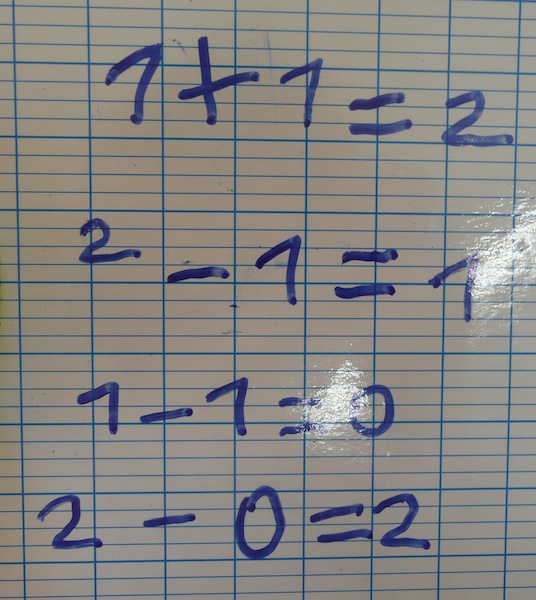 1+1=2
2-1=1
1-1=0
2-0=2